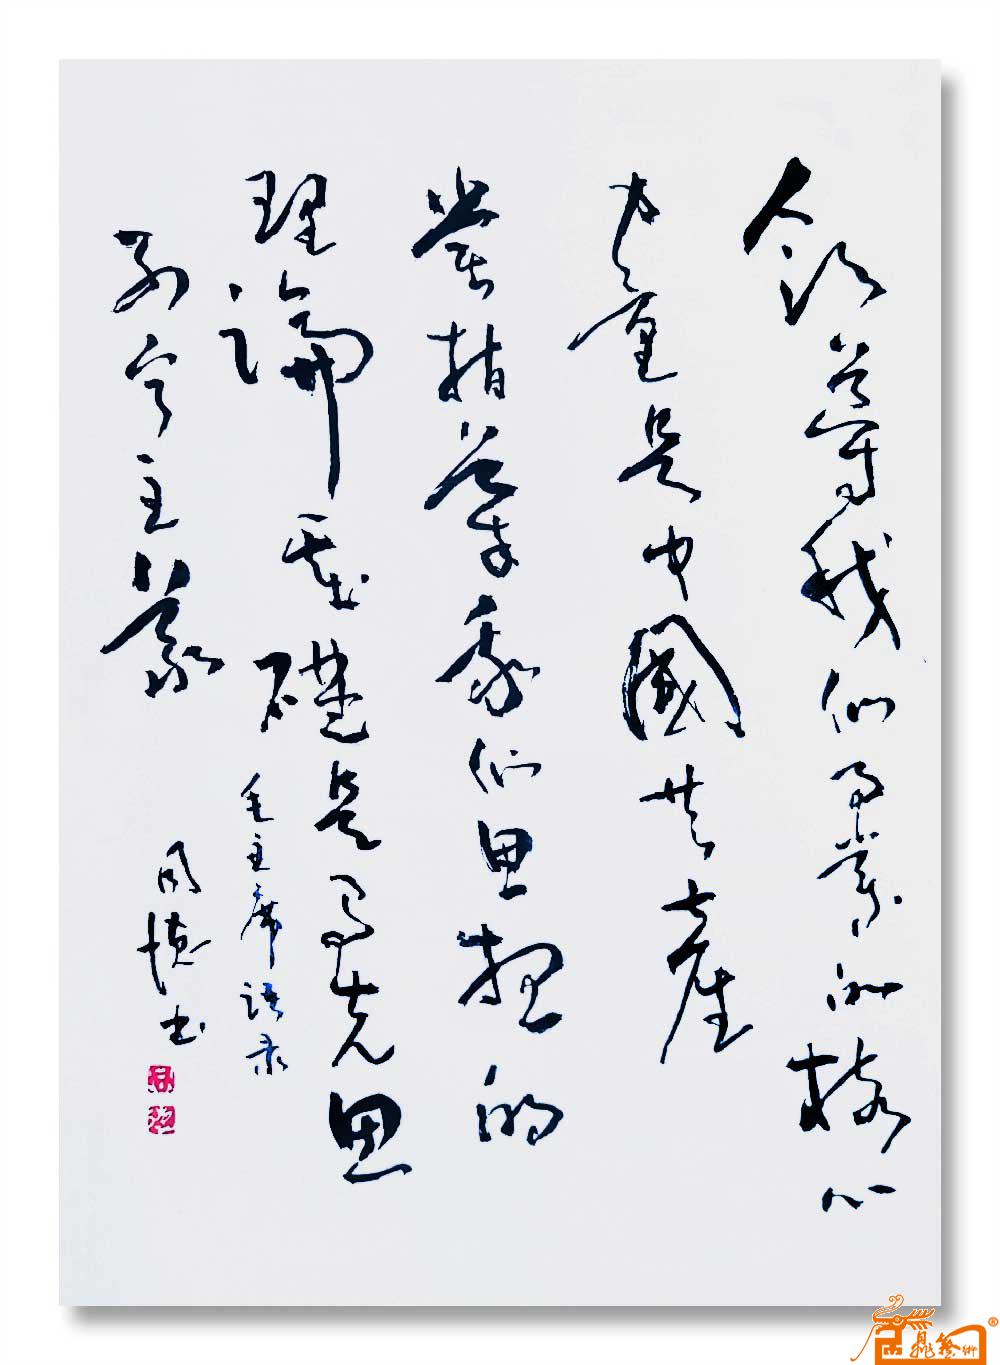 领导我们事業的核心
力量是中國共産
党指导我们思想的
理論基礎是马克思
列宁主義
毛主席语录
书